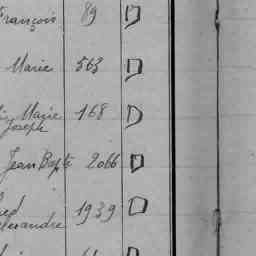 François 89 D
Marie 563 D
Marie 168 D
Joseph
Jean Bapte 2066 D
1939 D